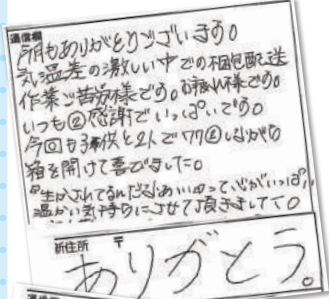 通信欄
今月もありがとうございます。
気温差の激しい中での梱包配送
作業ご苦労様です。お疲れ様です。
いつも②感謝でいっぱいです。
今回も子供と2人でワクⓔしながら
箱を開けて喜びました。
温かい気持ちにさせて頂きまして。
新住所 〒
ありがとう。